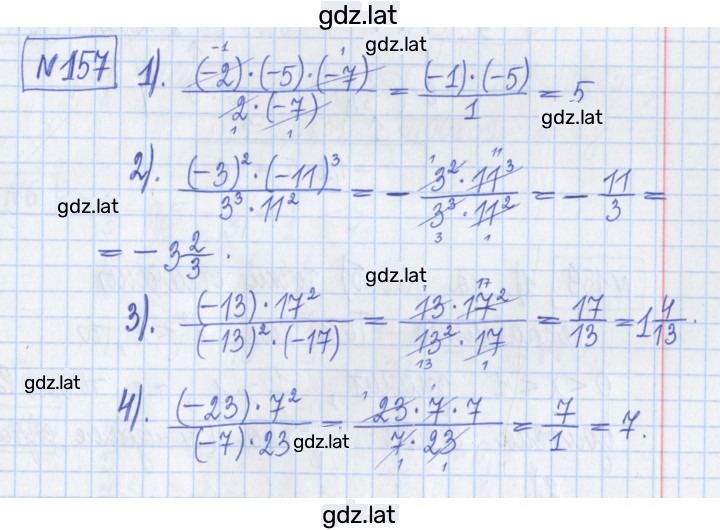 gdz.lat
gdz.lat
№157 1). (-2)·(-5)·(-7) / 2·(-7) = (-1)·(-5) / 1 = 5
gdz.lat
2). (-3)²·(-11)³ / 3³·11² = - 3²·11³ / 3³·11² = - 11/3 =
gdz.lat
= - 3 2/3.
gdz.lat
3). (-13)·17² / (-13)²·(-17) = 13·17² / 13²·17 = 17/13 = 1 4/13.
gdz.lat
4). (-23)·7² / (-7)·23 = 23·7·7 / 7·23 = 7/1 = 7.
gdz.lat
gdz.lat